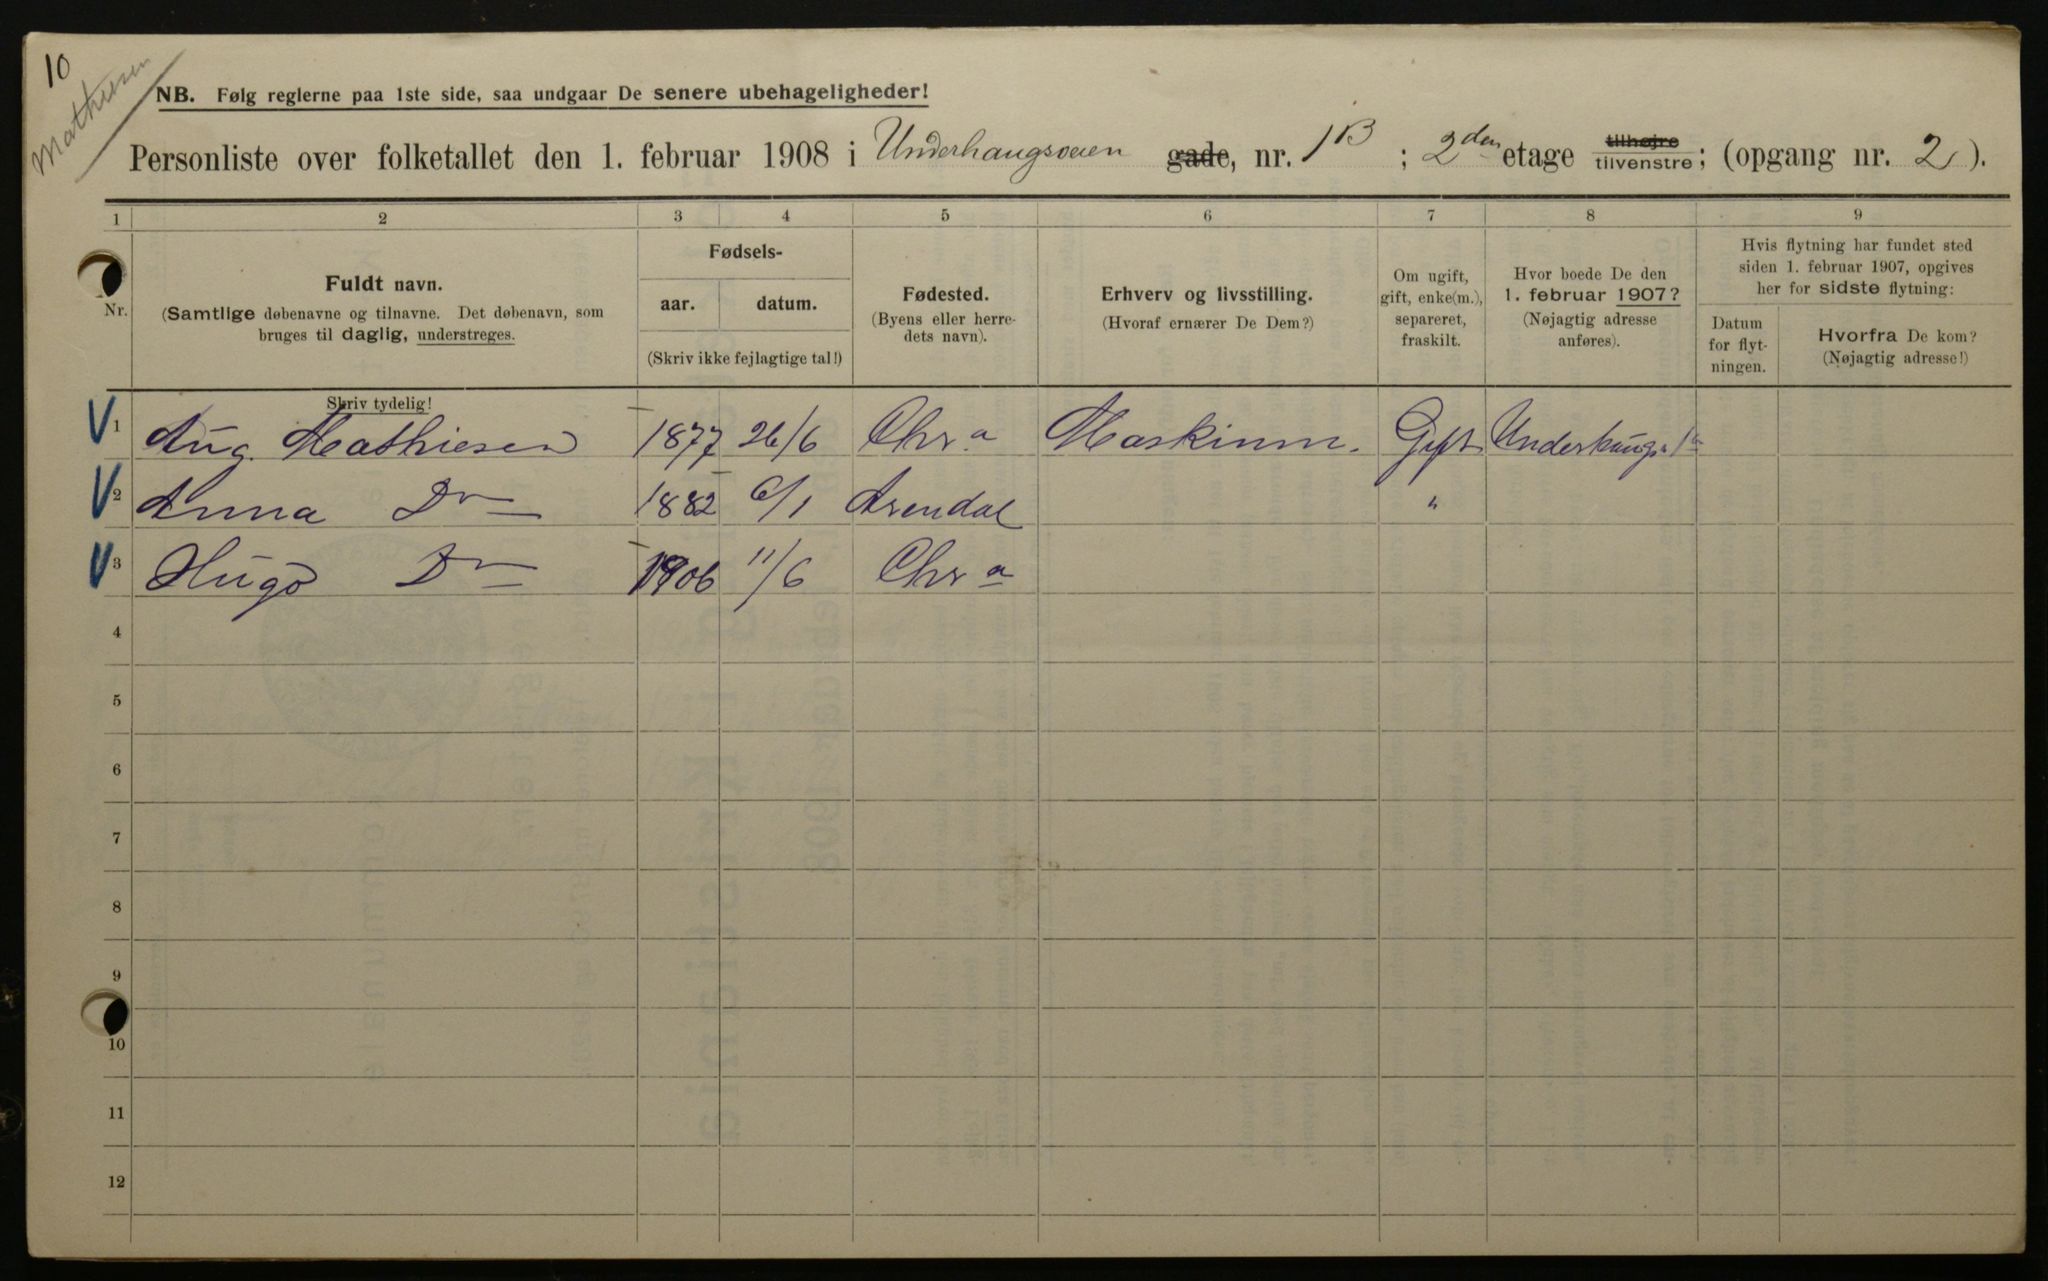 10
Mathiesen
NB. Følg reglerne paa 1ste side, saa undgaar De senere ubehageligheder!
Personliste over folketallet den 1. februar 1908 i Underhaugsveien gade, nr. 1B; 2den etage tilhøjre tilvenstre; (opgang nr. 2).
1 2 3 4 5 6 7 8 9
Nr.
Fuldt navn.
(Samtlige døbenavne og tilnavne. Det døbenavn, som
bruges til daglig, understreges.
Fødsels-
aar. datum.
(Skriv ikke fejlagtige tal!)
Fødested.
(Byens eller herre-
dets navn).
Erhverv og livsstilling.
(Hvoraf ernærer De Dem?)
Om ugift,
gift, enke(m.),
separeret,
fraskilt.
Hvor boede De den
1. februar 1907?
(Nøjagtig adresse
anføres).
Hvis flytning har fundet sted
siden 1. februar 1907, opgives
her for sidste flytning:
Datum
for flyt-
ningen.
Hvorfra De kom?
(Nøjagtig adresse!)
Skriv tydelig!
V 1 Aug. Mathiesen 1877 26/6 Chra Maskinm. Gift
V 2 Anna Do 1882 6/1 Arendal "
V 3 Hugo Do 1906 11/6 Chra
4
5
6
7
8
9
10
11
12